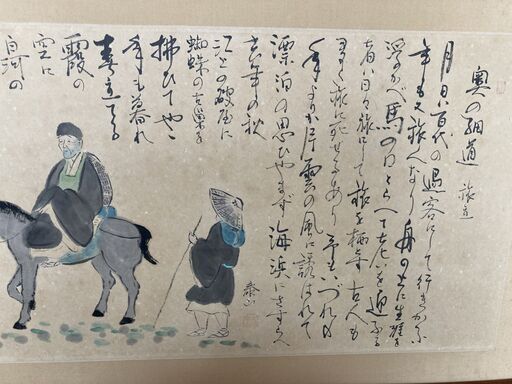 奥の細道 旅立
月日ハ百代の過客にして行きかふ
年も又旅人なり舟の上に生涯を
浮かべ馬の口とらへて老いを迎ふる
者ハ日々旅にして旅を栖とす古人も
多く旅に死せるあり予もいづれの
年よりか片雲の風に誘はれて
漂泊の思ひやまず海浜にさすらへ
去年の秋
江上の破屋に
蜘蛛の古巣を
拂ひてやゝ
年も暮れ
春立てる
霞の
空に
白河の